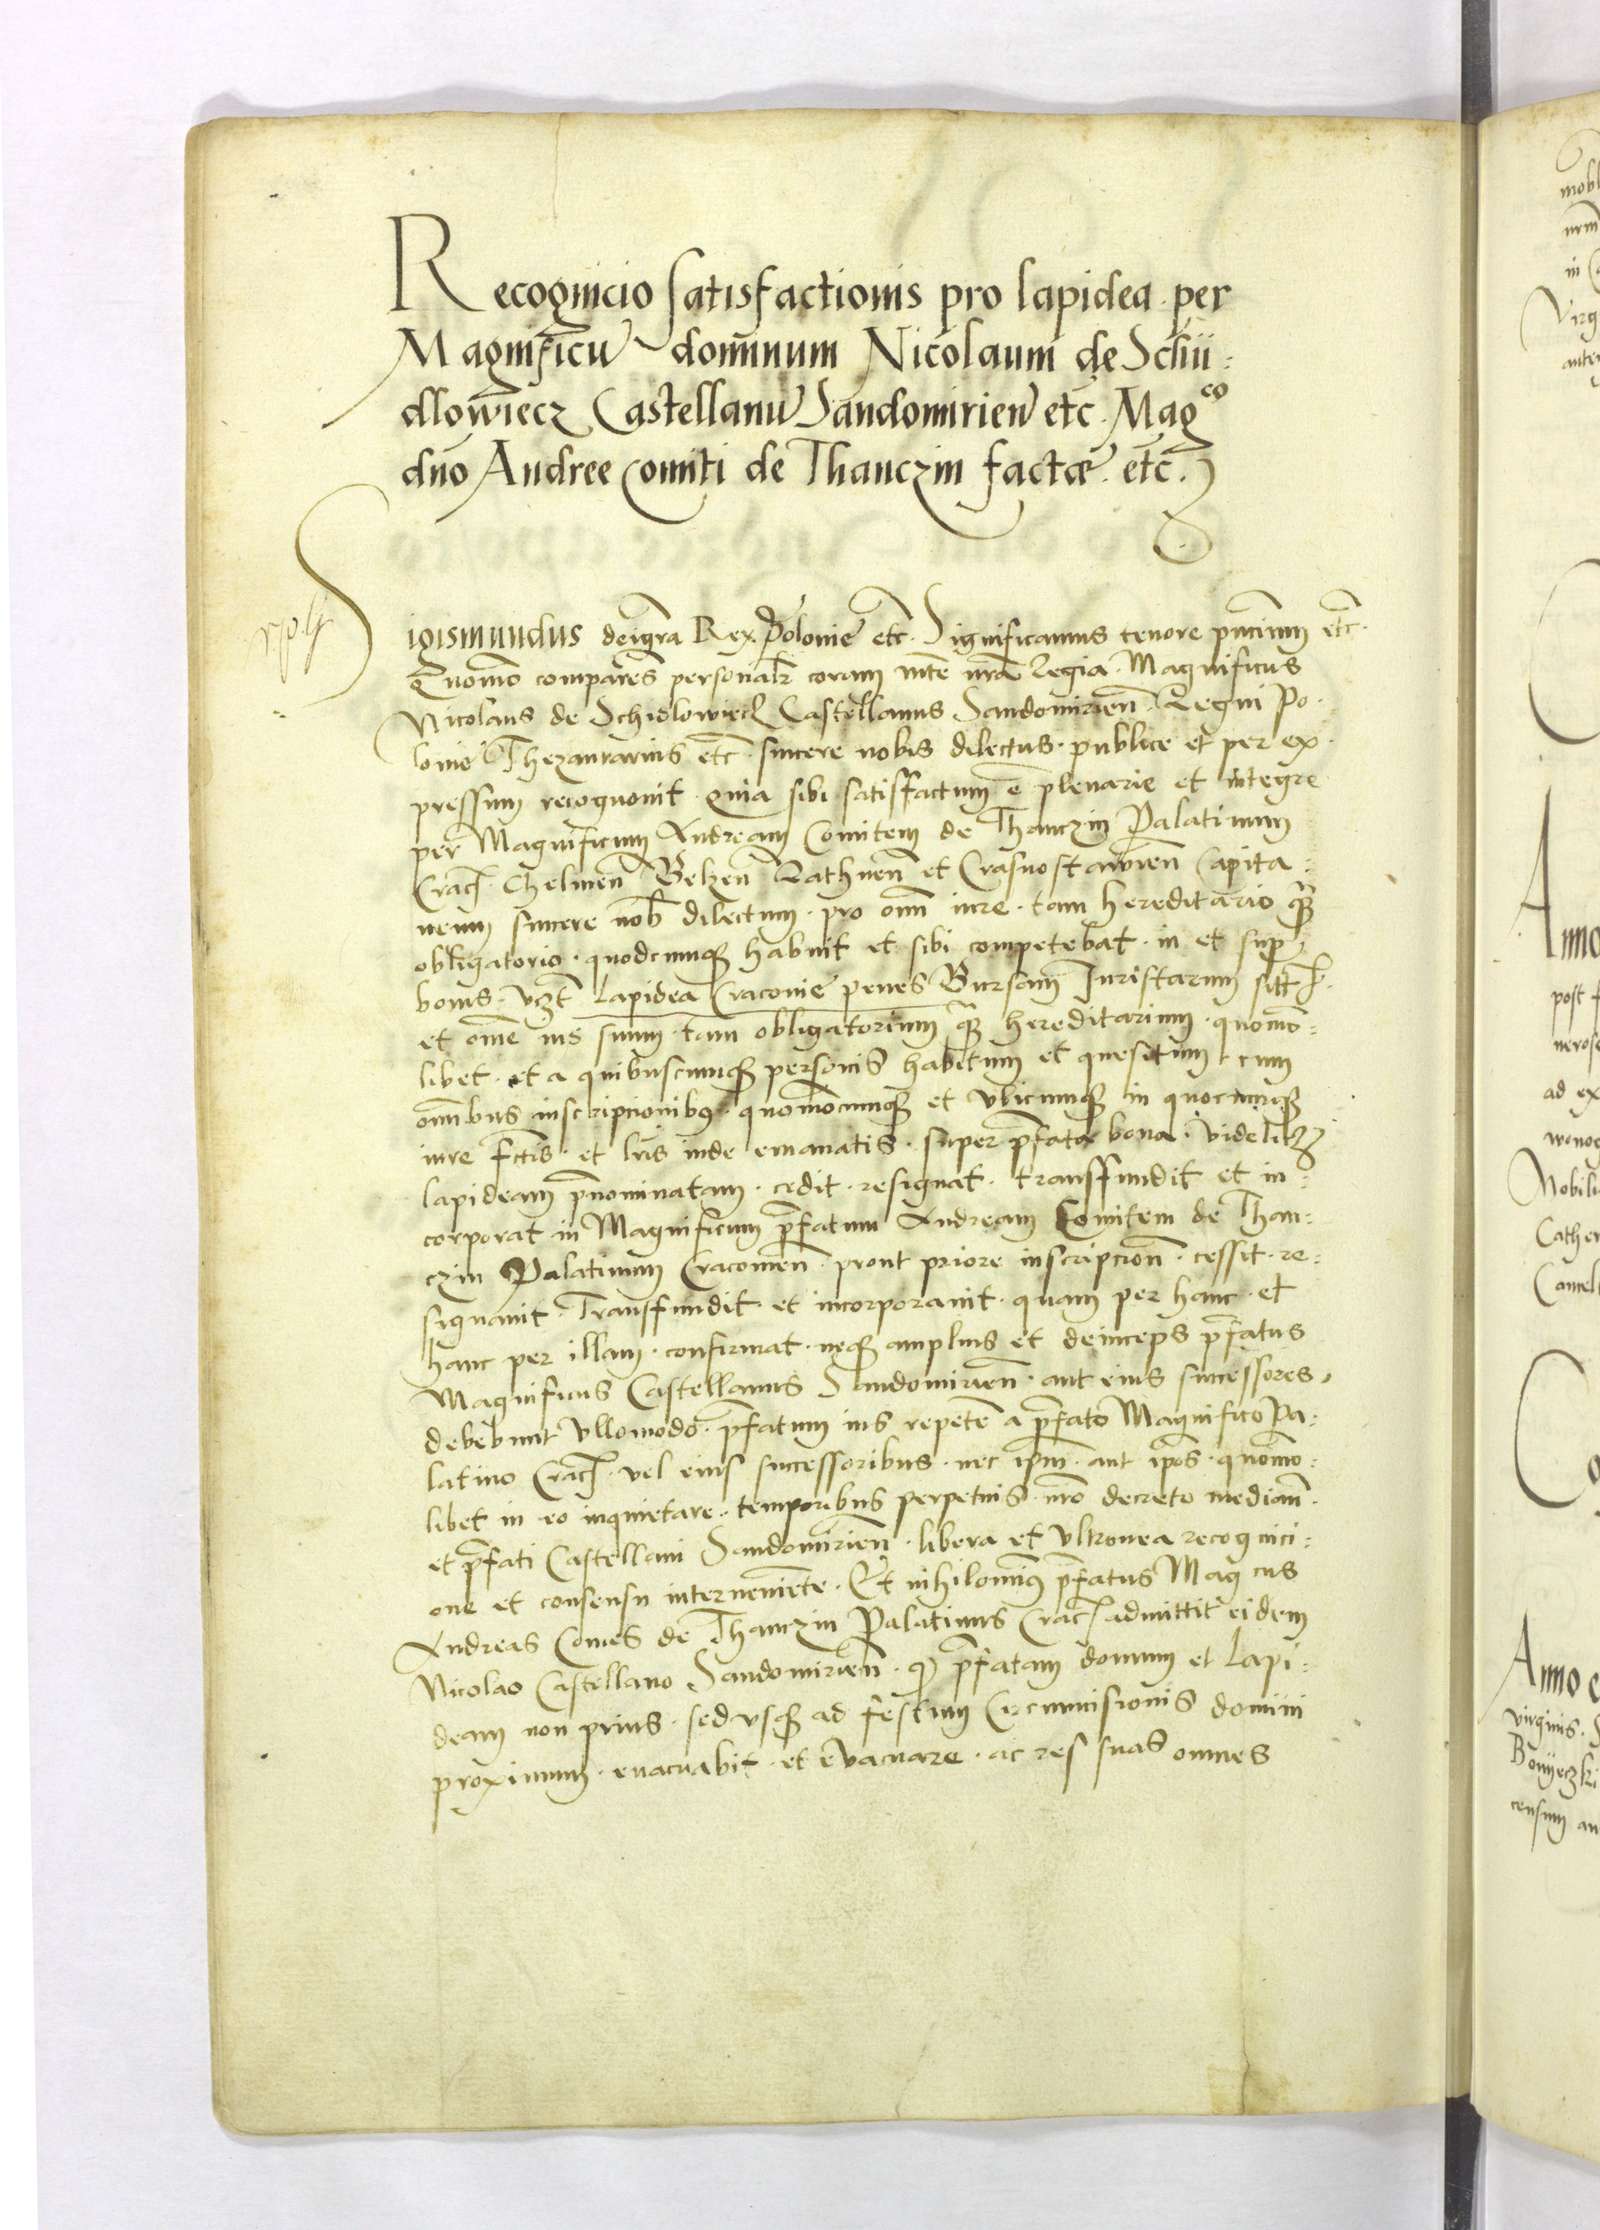 Recognicio satisfactionis pro lapidea per
Magnificu dominum Nicolaum de Schii:
dlowiecz Castellanu Sandomirien etc. Magco
dno Andree Comiti de Thanczin factæ. etc.
Sigismundus dei gra Rex Polonie etc. Significamus tenore pntium etc.
Quomo comparens personalr coram mte nra Regia. Magnificus
Nicolaus de Schidlowiecz Castellanus Sandomirien. Regni Po
lonie Thezaurarius etc. sincere nobis dilectus. publice et per ex
pressum recognovit. quia sibi satisfactum e plenarie et integre
per Magnificum Andream Comitem de Thanczin Palatinum
Crac. Chelmen Belzen Rathnen et Crasnostawien Capita:
neum sincere nob dilectum. pro omi iure. tam hereditario qz
obligatorio. quodcunqz habuit et sibi competebat. in et supr
bonis. vzt Lapidea Cracovie penes Bursam Iuristarum sitt
et ome ius suum. tam obligatorium qz hereditarium. quomo:
libet. et a quibuscunqz personis habitum et quesitum cum
omibus inscriptionibus. quomocunqz et vbicunqz in quocunqz
iure fctis. et lris inde emanatis. super pfata bona. videlitz
lapideam pnominatam. cedit. resignat. transffundit et in:
corporat in Magnificum prefatum Andream Comitem de Than:
czin Palatinum Cracovien. prout priore inscripcion. cessit. re:
signavit. Transffundit. et incorporavit. quam per hanc. et
hanc per illam. confirmat. neqz amplius et deinceps pfatus
Magnificus Castellanus Sandomirien. aut eius successores.
debebunt vllomodo. pfatum ius repetere a pfato Magnifico Pa:
latino Crac. vel eius successoribus. nec ipm. aut ipos. quomo:
libet in eo inquietare. temporibus perpetuis. nro decreto median.
et pfati Castellani Sandomirien. libera et vltronea recognici:
one et consensu interveniente. Et nihilominus pfatus Mag cus
Andreas Comes de Thanczin Palatinus Crac. admittit eidem
Nicolao Castellano Sandomirien. qd pfatam domum et Lapi:
deam non prius. sed vsqz ad festum Circumcisionis domini
proximum. euacuabit. et evacuare. ac res suas omnes